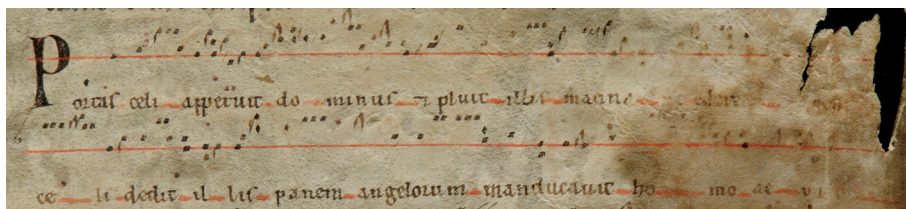 Portas celi apperuit do minus ⁊ pluit illis manna
ce li dedit il lis panem angelorum manducavit ho mo